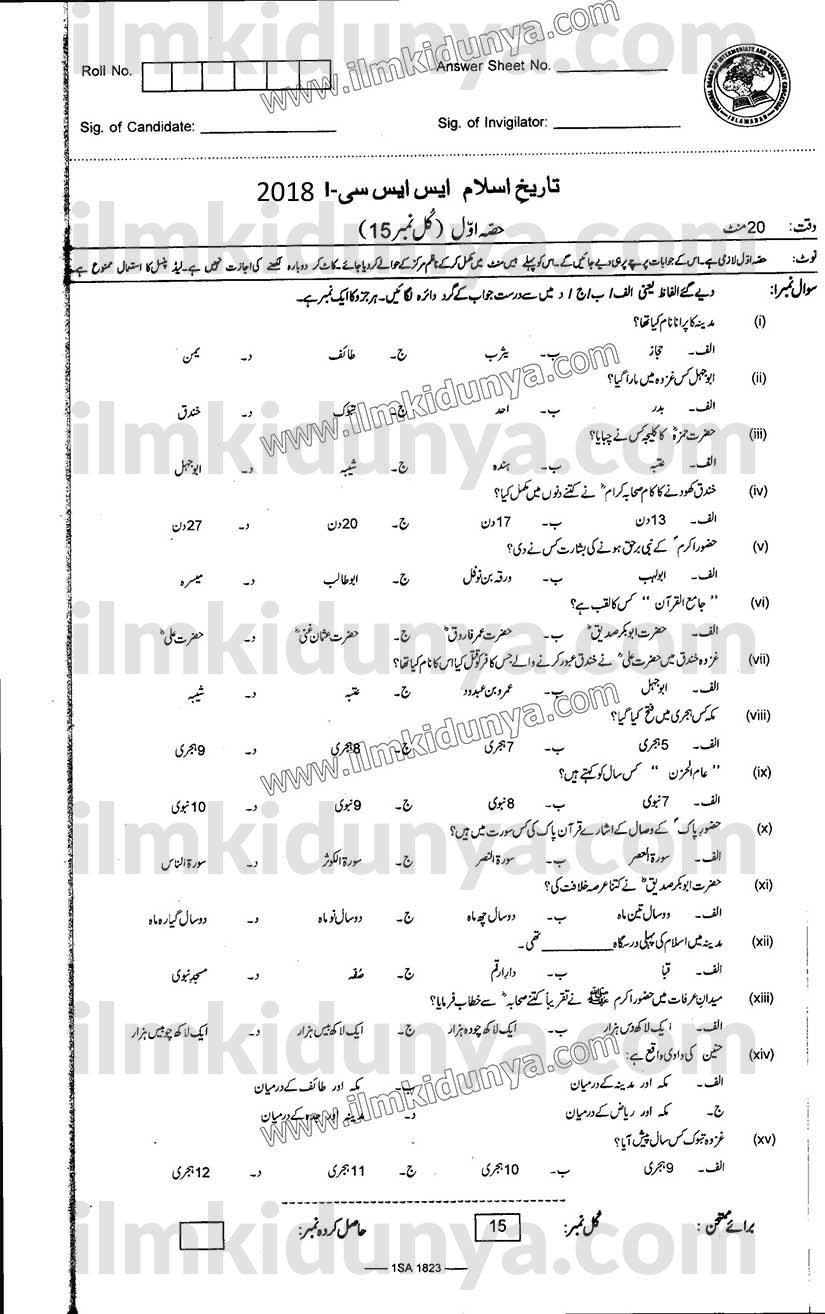 Roll No.
Answer Sheet No.
Sig. of Candidate:
Sig. of Invigilator:
FEDERAL BOARD OF INTERMEDIATE AND SECONDARY EDUCATION
ISLAMABAD
تاریخ اسلام ایس ایس سی-I 2018
وقت: 20 منٹ
حصہ اوّل (کُل نمبر 15)
نوٹ: حصہ اوّل لازمی ہے۔ اس کے جوابات پرچے پر ہی دیے جائیں گے۔ اس کو پہلے بیس منٹ میں مکمل کر کے ناظم مرکز کے حوالے کر دیا جائے۔ کاٹ کر دوبارہ لکھنے کی اجازت نہیں ہے۔ لیڈ پنسل کا استعمال ممنوع ہے
سوال نمبر ا: دیے گئے الفاظ یعنی الف / ب / ج / د میں سے درست جواب کے گرد دائرہ لگائیں۔ ہر جزو کا ایک نمبر ہے۔
(i) مدینہ کا پرانا نام کیا تھا؟
الف۔ حجاز ب۔ یثرب ج۔ طائف د۔ یمن
(ii) ابوجہل کس غزوہ میں مارا گیا؟
الف۔ بدر ب۔ احد ج۔ تبوک د۔ خندق
(iii) حضرت حمزہؓ کا کلیجہ کس نے چبایا؟
الف۔ عتبہ ب۔ ہندہ ج۔ شیبہ د۔ ابوجہل
(iv) خندق کھودنے کا کام صحابہ کرامؓ نے کتنے دنوں میں مکمل کیا؟
الف۔ 13 دن ب۔ 17 دن ج۔ 20 دن د۔ 27 دن
(v) حضور اکرمؐ کے نبی برحق ہونے کی بشارت کس نے دی؟
الف۔ ابولہب ب۔ ورقہ بن نوفل ج۔ ابوطالب د۔ میسرہ
(vi) ’’جامع القرآن‘‘ کس کا لقب ہے؟
الف۔ حضرت ابوبکر صدیقؓ ب۔ حضرت عمر فاروقؓ ج۔ حضرت عثمان غنیؓ د۔ حضرت علیؓ
(vii) غزوہ خندق میں حضرت علیؓ نے خندق عبور کرنے والے جس کافر کو قتل کیا اس کا نام کیا تھا؟
الف۔ ابوجہل ب۔ عمرو بن عبدود ج۔ عتبہ د۔ شیبہ
(viii) مکہ کس ہجری میں فتح کیا گیا؟
الف۔ 5 ہجری ب۔ 7 ہجری ج۔ 8 ہجری د۔ 9 ہجری
(ix) ’’عام الحزن‘‘ کس سال کو کہتے ہیں؟
الف۔ 7 نبوی ب۔ 8 نبوی ج۔ 9 نبوی د۔ 10 نبوی
(x) حضور پاکؐ کے وصال کے اشارے قرآن پاک کی کس سورت میں ہیں؟
الف۔ سورۃ العصر ب۔ سورۃ النصر ج۔ سورۃ الکوثر د۔ سورۃ الناس
(xi) حضرت ابوبکر صدیقؓ نے کتنا عرصہ خلافت کی؟
الف۔ دو سال تین ماہ ب۔ دو سال چھ ماہ ج۔ دو سال نو ماہ د۔ دو سال گیارہ ماہ
(xii) مدینہ میں اسلام کی پہلی درسگاہ ________ تھی۔
الف۔ قبا ب۔ دارِ ارقم ج۔ صُفّہ د۔ مسجد نبوی
(xiii) میدانِ عرفات میں حضور اکرم ﷺ نے تقریباً کتنے صحابہؓ سے خطاب فرمایا؟
الف۔ ایک لاکھ دس ہزار ب۔ ایک لاکھ چودہ ہزار ج۔ ایک لاکھ بیس ہزار د۔ ایک لاکھ چوبیس ہزار
(xiv) حنین کی وادی واقع ہے:
الف۔ مکہ اور مدینہ کے درمیان ب۔ مکہ اور طائف کے درمیان
ج۔ مکہ اور ریاض کے درمیان د۔ مدینہ اور جدہ کے درمیان
(xv) غزوہ تبوک کس سال پیش آیا؟
الف۔ 9 ہجری ب۔ 10 ہجری ج۔ 11 ہجری د۔ 12 ہجری
برائے ممتحن: کُل نمبر: 15 حاصل کردہ نمبر:
1SA 1823
ilmkidunya.com
www.ilmkidunya.com